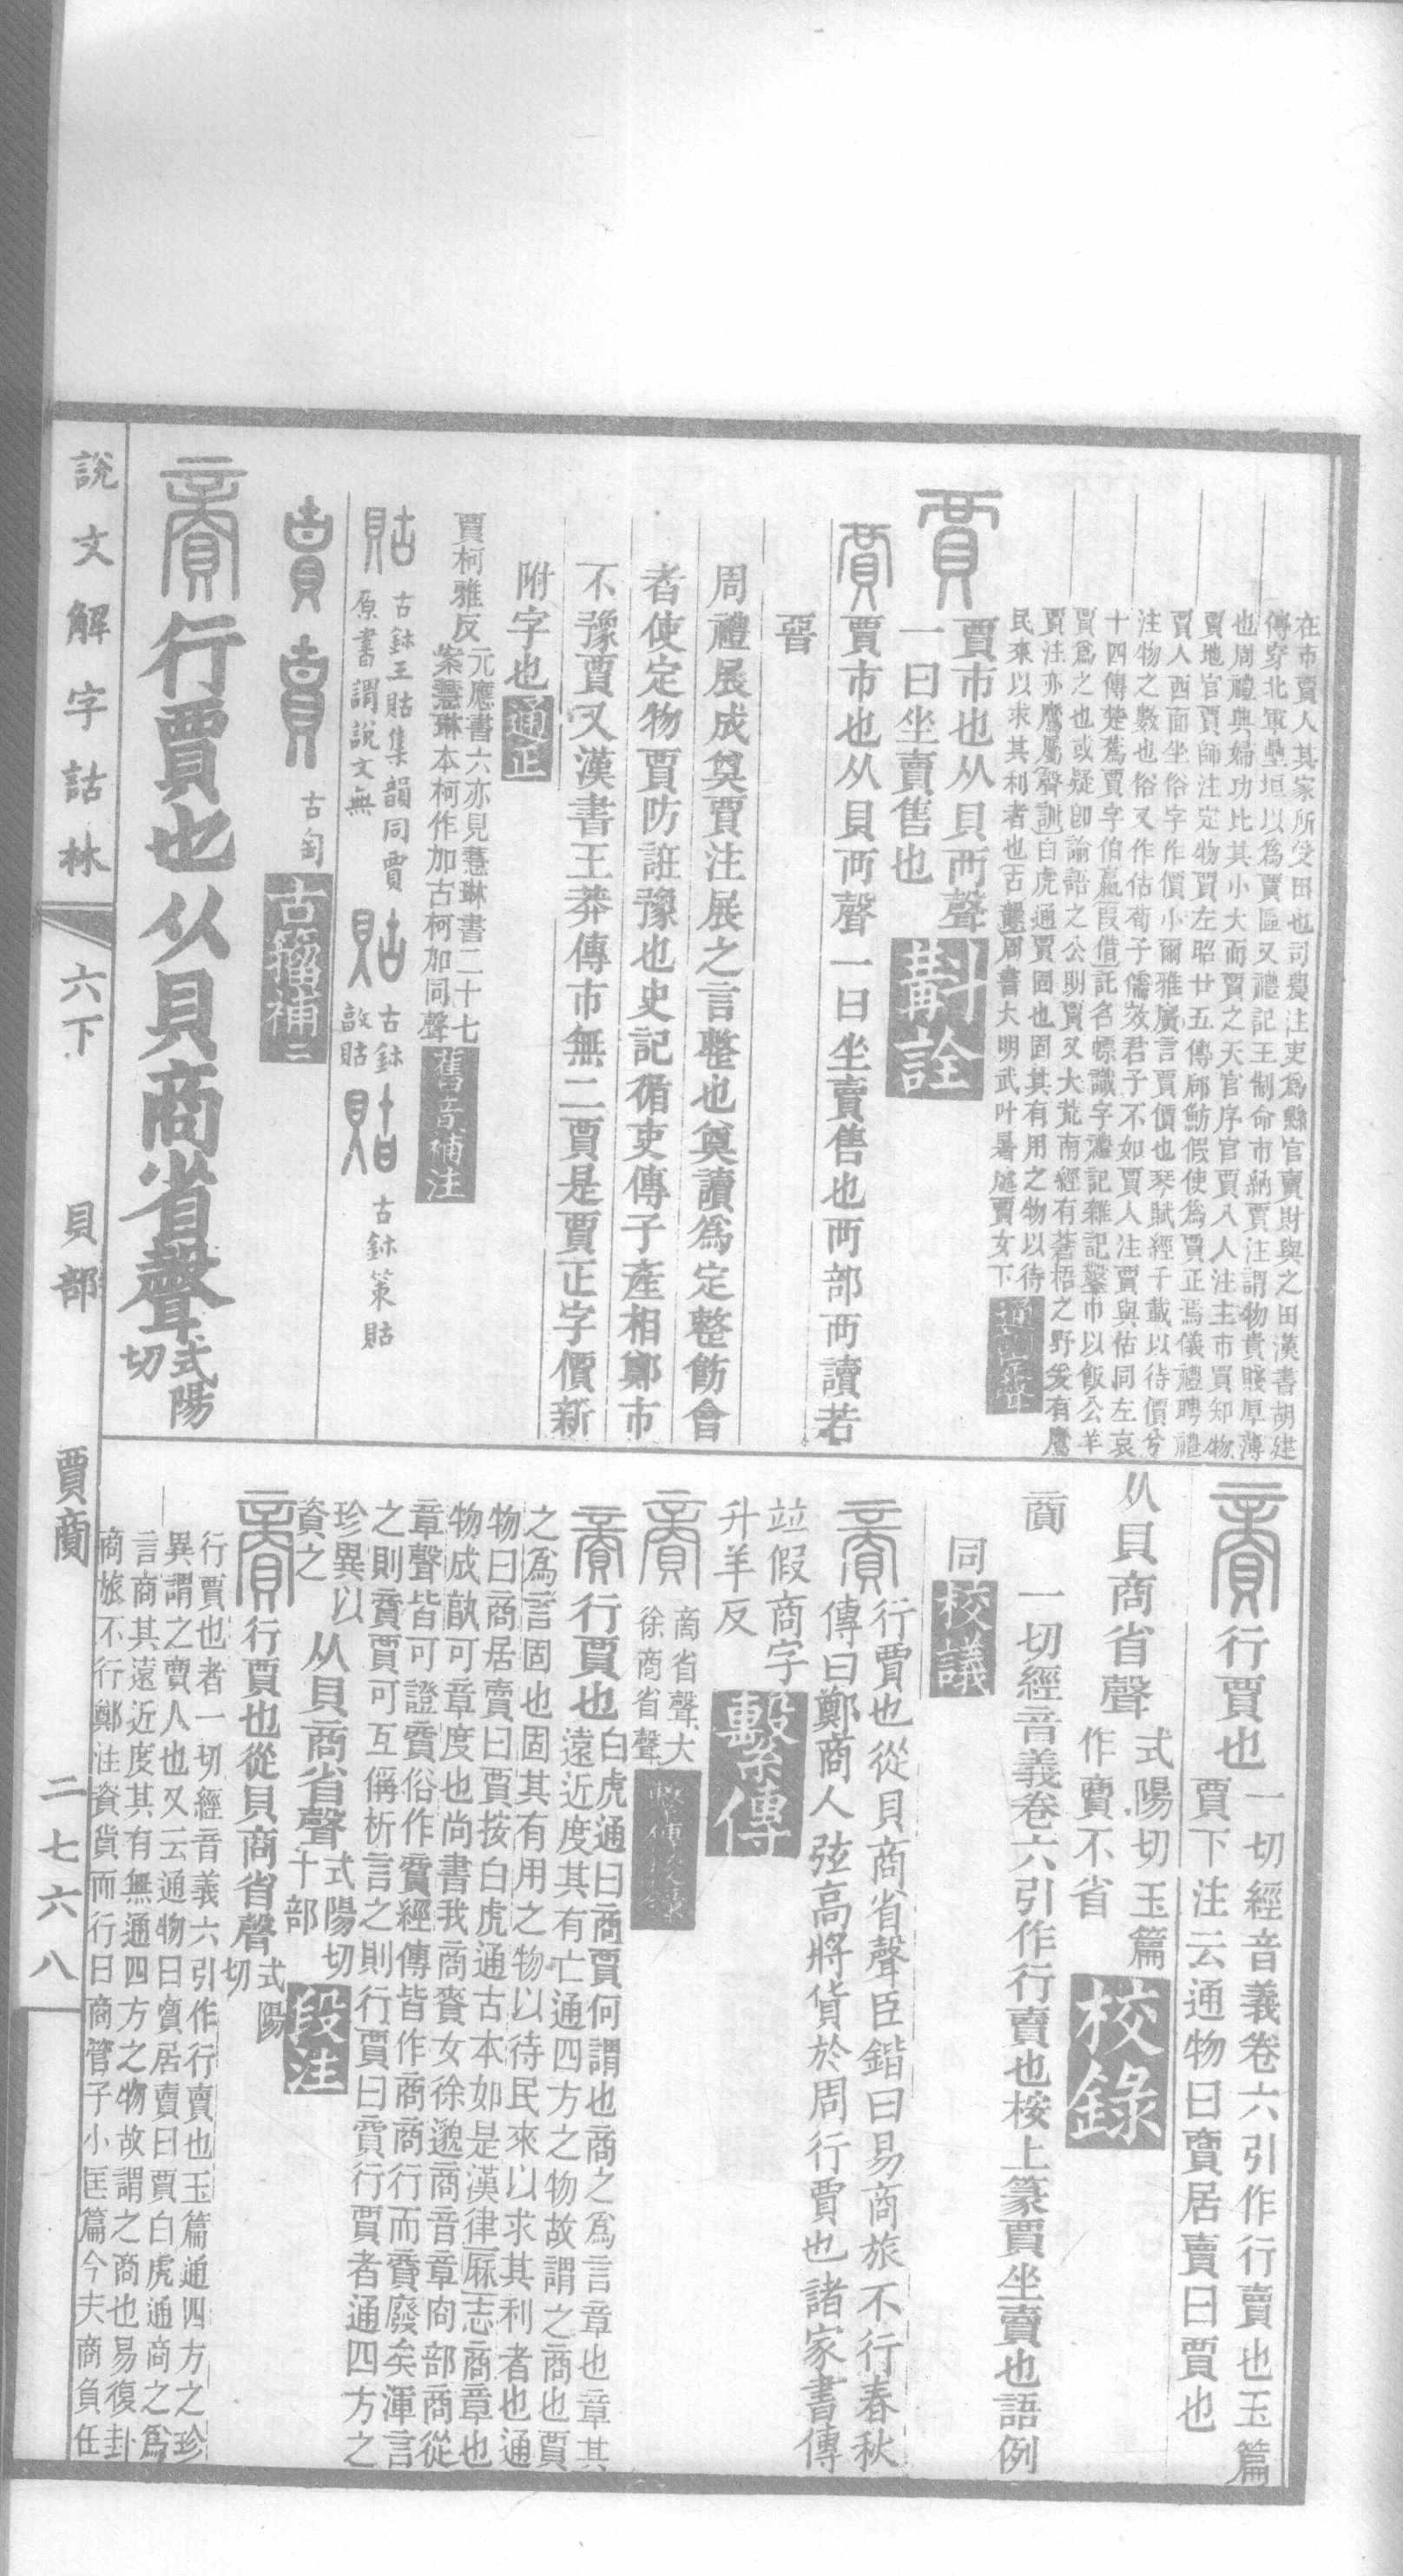 在市賣人其家所受田也司農注吏爲縣官賣財與之田漢書胡建
傳穿北軍壘垣以爲賈區又禮記王制命市納賈注謂物貴賤厚薄
也周禮典婦功比其小大而賈之天官序官賈八人注主市買知物
賈地官賈師注定物賈左昭廿五傳郈魴假使爲賈正焉儀禮聘禮
賈人西面坐俗字作價小爾雅廣言賈價也琴賦經千載以待價兮
注物之數也俗又作估荀子儒效君子不如賈人注賈與估同左哀
十四傳楚蔿賈字伯嬴叚借託名幖識字禮記雜記鑿巾以飯公羊
賈爲之也或疑卽論語之公明賈又大荒南經有蒼梧之野爰有鷹
賈注亦鷹屬聲訓白虎通賈固也固其有用之物以待
民來以求其利者也古韻周書大明武叶暑賈女下
賈 賈市也从貝襾聲
一曰坐賣售也
斠詮
賈 賈市也从貝襾聲一曰坐賣售也襾部襾讀若
晉
周禮展成奠賈注展之言整也奠讀爲定整飭會
者使定物賈防誑豫也史記循吏傳子產相鄭市
不豫賈又漢書王莽傳市無二賈是賈正字價新
附字也 通正
賈柯雅反 元應書六亦見慧琳書二十七
案慧琳本柯作加古柯加同聲 舊音補注
古鉥王貼集韻同賈
原書謂說文無
古鉥
古鉥策貼
古匋 古籀補二
行賈也从貝商省聲 式陽
切
說文解字詁林 六下 貝部 賈𧶜 二七六八
行賈也 一切經音義卷六引作行賣也玉篇
賈下注云通物曰𧶜居賣曰賈也
从貝商省聲 式陽切玉篇
作𧶜不省 校錄
一切經音義卷六引作行賣也桉上篆賈坐賣也語例
同 校議
行賈也從貝商省聲臣鍇曰易商旅不行春秋
傳曰鄭商人弦高將貨於周行賈也諸家書傳
竝假商字
升羊反 繫傳
商省聲大
徐商省聲
行賈也 白虎通曰商賈何謂也商之爲言章也章其
遠近度其有亡通四方之物故謂之商也賈
之爲言固也固其有用之物以待民來以求其利者也通
物曰商居賣曰賈按白虎通古本如是漢律厤志商章也
物成孰可章度也尚書我商賚女徐邈商音章㕯部商從
章聲皆可證𧶜俗作𧶜經傳皆作商商行而𧶜廢矣渾言
之則𧶜賈可互偁析言之則行賈曰𧶜行賈者通四方之
珍異以
資之
从貝商省聲 式陽切
十部 段注
行賈也從貝商省聲 式陽
切
行賈也者一切經音義六引作行賣也玉篇通四方之珍
異謂之賣人也又云通物曰𧶜居賣曰賈白虎通商之爲
言商其遠近度其有無通四方之物故謂之商也易復卦
商旅不行鄭注資貨而行曰商管子小匡篇今夫商負任